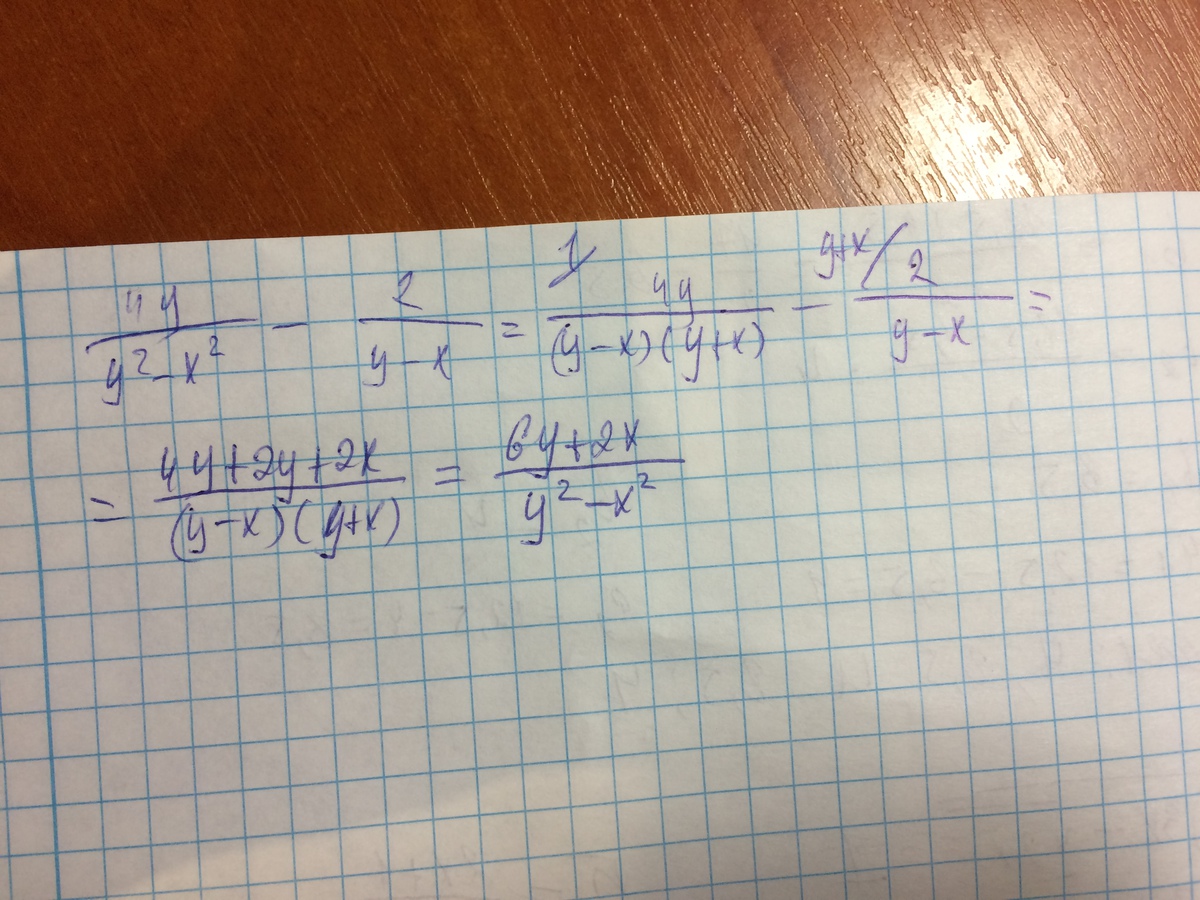 4y/(y²-x²) - 2/(y-x) = 1/ 4y/((y-x)(y+x)) - y+x/ 2/(y-x) =
= (4y+2y+2x)/((y-x)(y+x)) = (6y+2x)/(y²-x²)